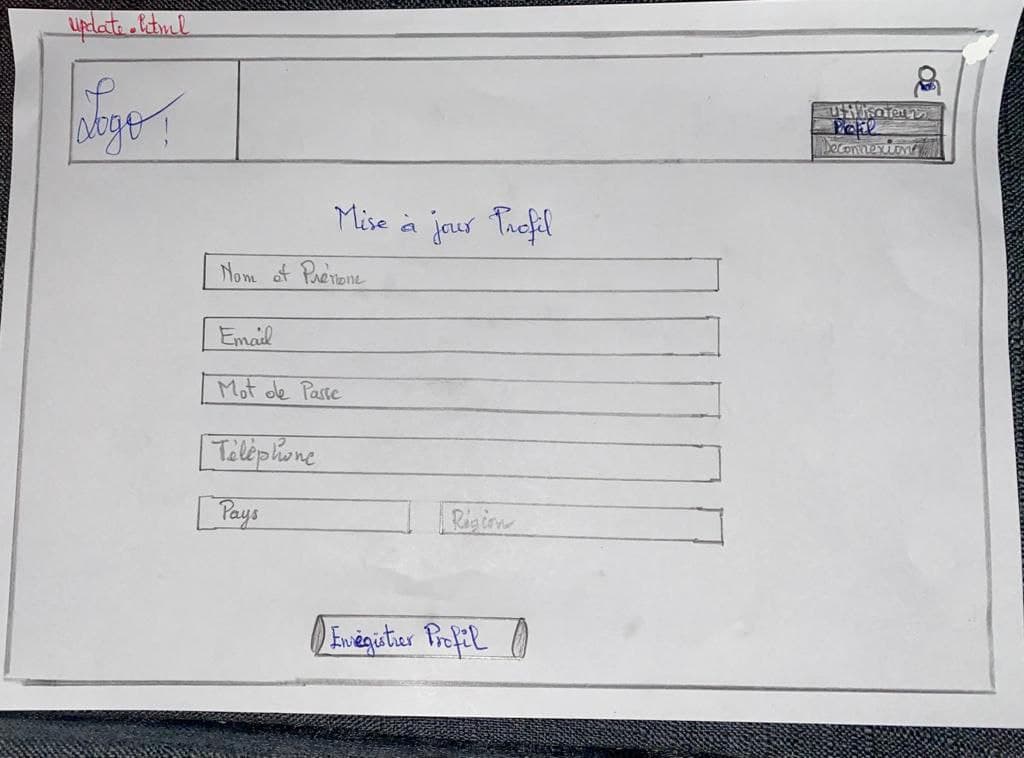 update.html
Logo !
Utilisateur
Profil
Deconnexion
Mise à jour Profil
Nom et Prénom
Email
Mot de Passe
Téléphone
Pays
Région
Enrégistrer Profil